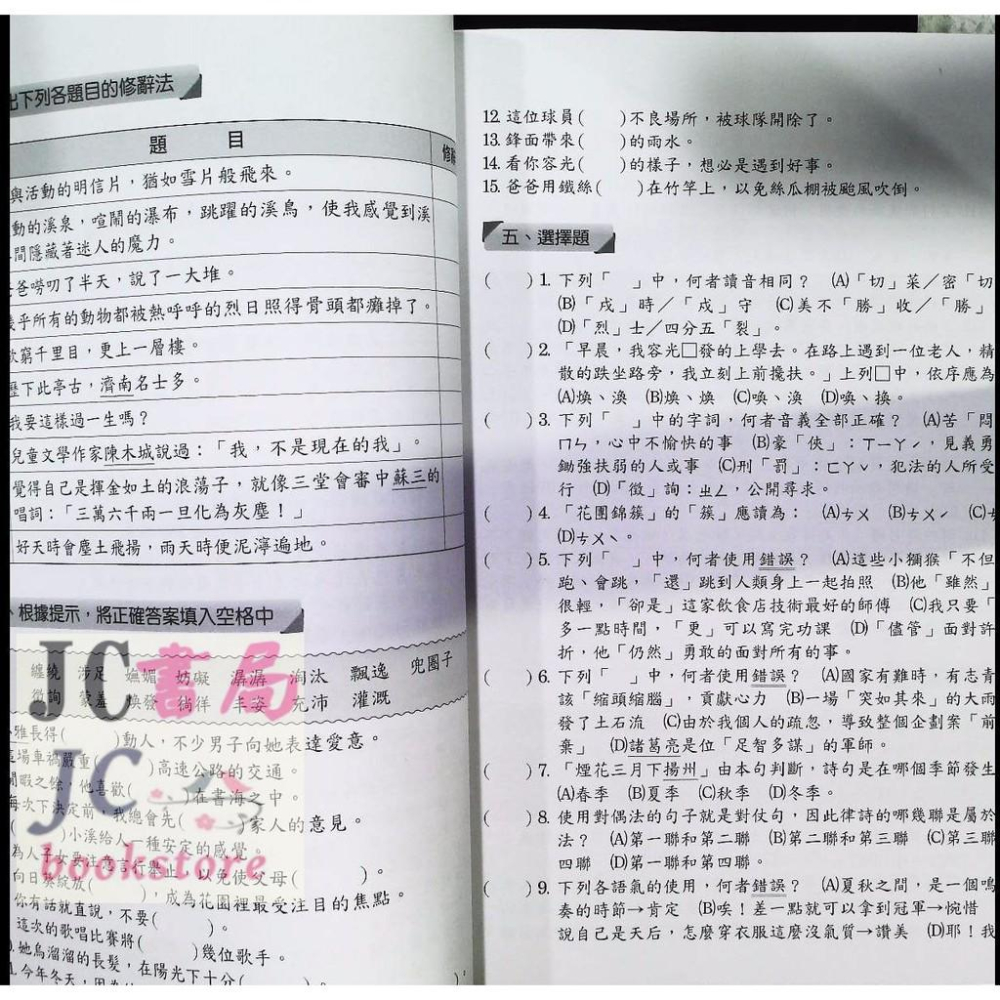 出下列各題目的修辭法
題目
修辭
與活動的明信片，猶如雪片般飛來。
動的溪泉，喧鬧的瀑布，跳躍的溪鳥，使我感覺到溪
間隱藏著迷人的魔力。
爸嘮叨了半天，說了一大堆。
幾乎所有的動物都被熱呼呼的烈日照得骨頭都癱掉了。
欲窮千里目，更上一層樓。
歷下此亭古，濟南名士多。
我要這樣過一生嗎？
兒童文學作家陳木城說過：「我，不是現在的我」。
覺得自己是揮金如土的浪蕩子，就像三堂會審中蘇三的
唱詞：「三萬六千兩一旦化為灰塵！」
好天時會塵土飛揚，雨天時便泥濘遍地。
、根據提示，將正確答案填入空格中
纏繞 涉足 嫵媚 妨礙 潺潺 淘汰 飄逸 兜圈子
徵詢 蒙羞 煥發 徜徉 丰姿 充沛 灌溉
雅長得( )動人，不少男子向她表達愛意。
這場車禍嚴重( )高速公路的交通。
閒暇之餘，他喜歡( )在書海之中。
每次下決定前，我總會先( )家人的意見。
( )小溪給人一種安定的感覺。
為人子女要注意言行舉止，以免使父母( )。
向日葵綻放( )，成為花園裡最受注目的焦點。
你有話就直說，不要( )。
這次的歌唱比賽將( )幾位歌手。
她烏溜溜的長髮，在陽光下十分( )。
今年冬天，因為
JC書局
JC
bookstore
12. 這位球員( )不良場所，被球隊開除了。
13. 鋒面帶來( )的雨水。
14. 看你容光( )的樣子，想必是遇到好事。
15. 爸爸用鐵絲( )在竹竿上，以免絲瓜棚被颱風吹倒。
五、選擇題
( )1. 下列「 」中，何者讀音相同？ (A)「切」菜／密「切
(B)「戍」時／「戍」守 (C)美不「勝」收／「勝」
(D)「烈」士／四分五「裂」。
( )2. 「早晨，我容光□發的上學去。在路上遇到一位老人，精
散的跌坐路旁，我立刻上前攙扶。」上列□中，依序應為
(A)煥、渙 (B)煥、煥 (C)喚、渙 (D)喚、換。
( )3. 下列「 」中的字詞，何者音義全部正確？ (A)苦「悶
ㄇㄣ，心中不愉快的事 (B)豪「俠」：ㄒㄧㄚˊ，見義勇
鋤強扶弱的人或事 (C)刑「罰」：ㄈㄚˇ，犯法的人所受
行 (D)「徵」詢：ㄓㄥ，公開尋求。
( )4. 「花團錦簇」的「簇」應讀為： (A)ㄘㄨ (B)ㄘㄨˊ (C)ㄘ
(D)ㄘㄨˋ。
( )5. 下列「 」中，何者使用錯誤？ (A)這些小獼猴「不但
跑、會跳，「還」跳到人類身上一起拍照 (B)他「雖然」
很輕，「卻是」這家飲食店技術最好的師傅 (C)我只要「
多一點時間，「更」可以寫完功課 (D)「儘管」面對許
折，他「仍然」勇敢的面對所有的事。
( )6. 下列「 」中，何者使用錯誤？ (A)國家有難時，有志青
該「縮頭縮腦」，貢獻心力 (B)一場「突如其來」的大雨
發了土石流 (C)由於我個人的疏忽，導致整個企劃案「前
葉」 (D)諸葛亮是位「足智多謀」的軍師。
( )7. 「煙花三月下揚州」由本句判斷，詩句是在哪個季節發生
(A)春季 (B)夏季 (C)秋季 (D)冬季。
( )8. 使用對偶法的句子就是對仗句，因此律詩的哪幾聯是屬於
法？ (A)第一聯和第二聯 (B)第二聯和第三聯 (C)第三聯
四聯 (D)第一聯和第四聯。
( )9. 下列各語氣的使用，何者錯誤？ (A)夏秋之間，是一個鳴
奏的時節→肯定 (B)唉！差一點就可以拿到冠軍→惋惜
說自己是天后，怎麼穿衣服這麼沒氣質→讚美 (D)耶！我